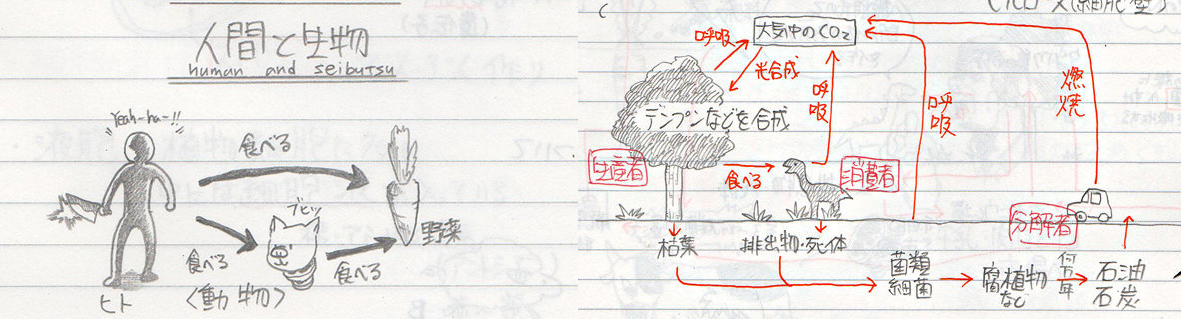 人間と生物
human and seibutsu
Yeah-ha-!!
食べる
食べる
ブヒッ
食べる
野菜
ヒト
<動物>
大気中のCO2
呼吸
光合成
デンプンなどを合成
呼吸
呼吸
燃焼
生産者
食べる
消費者
分解者
枯葉
排出物・死体
菌類
細菌
腐植物
など
何万年
石油
石炭